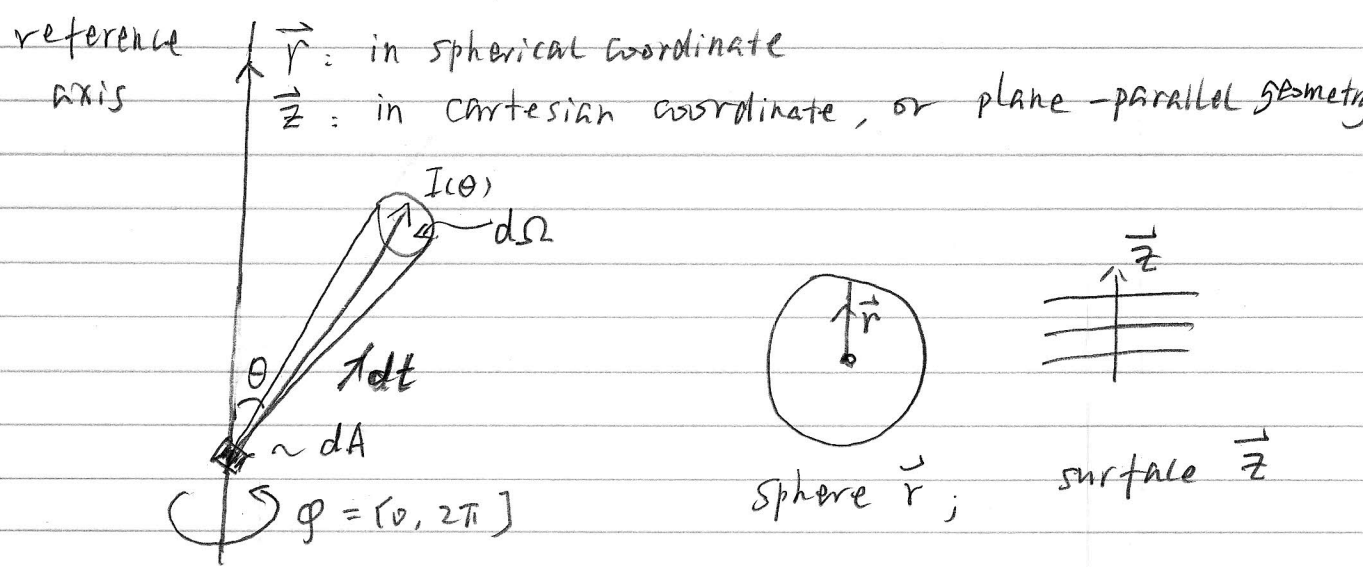 reference
axis
r⃗ : in spherical coordinate
z⃗ : in cartesian coordinate, or plane-parallel geometry
I(θ)
dΩ
θ
dt
~ dA
φ = [0, 2π]
r⃗
sphere r⃗ ;
z⃗
surface z⃗